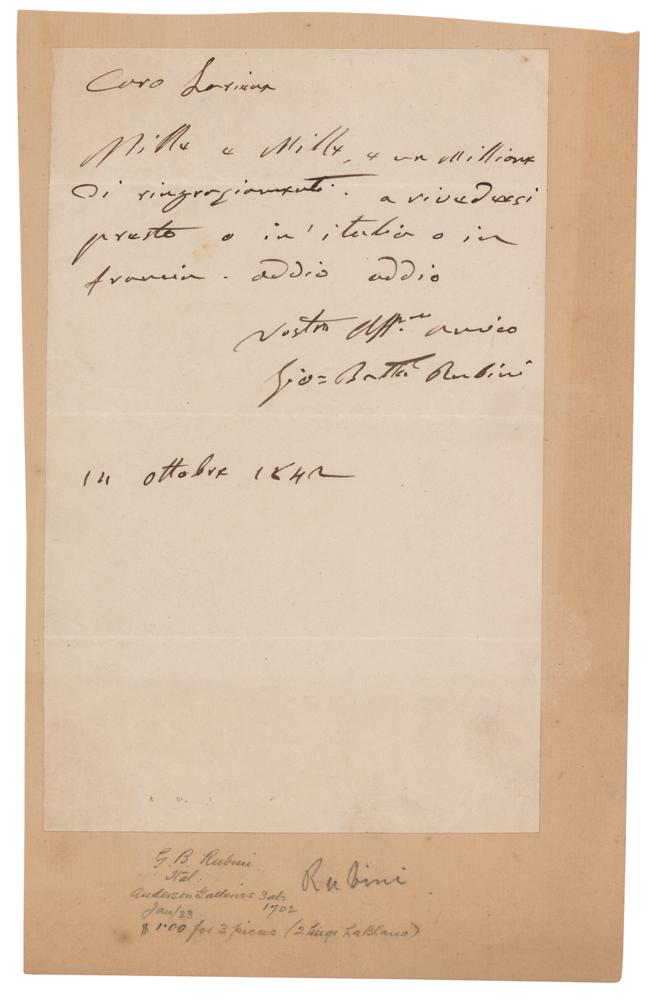 Caro
Mille e Mille, e un Millione
Di ringraziamenti. a rivederci
presto o in' italia o in
francia. addio addio
Vostro Aff.mo amico
Gio= Batta Rubini
14 ottobre 1842
G. B. Rubini
Ital.
Rubini
Anderson Galleries
Jan/23
$1.00 for 3 pieces (2 Luigi LaBlanc)